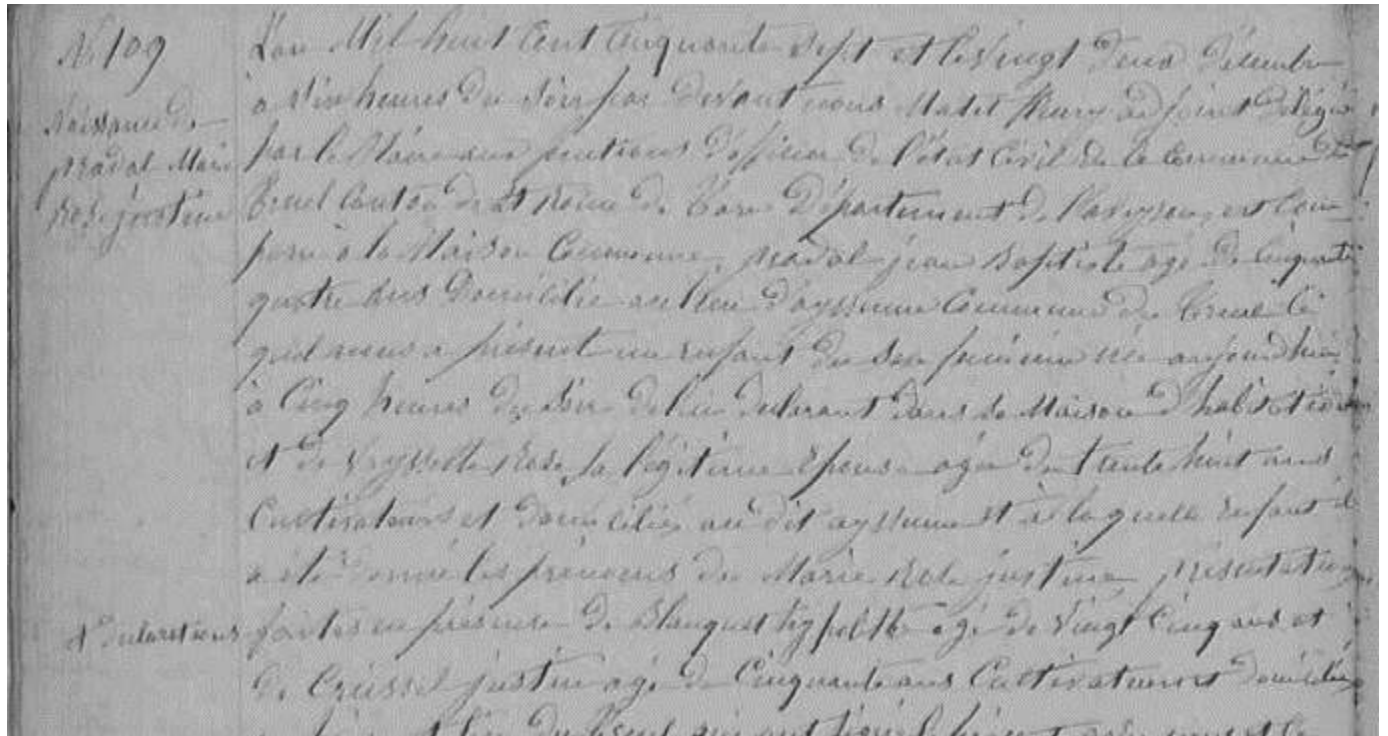 N° 109
Naissance de
pradal Marie
Rose justine
L'an Mil huit Cent Cinquante sept et le Vingt deux Décembre
à six heures du soir par devant nous Matet fleury adjoint délégué
par le Maire aux fonctions d'officier de l'état Civil de la Commune de
Truel Canton de St Rome de Tarn Département de l'aveyron, est Com
paru à la Maison Commune, pradal jean Baptiste agé de Cinquante
quatre ans Domicilié au lieu d'ayssenne Commune du Truel le
quel nous a présenté un enfant du sexe féminin née aujourd'hui
à Cinq heures du soir de lui déclarant dans sa Maison d'habitation
et de Veyssette Rose sa légitime épouse agée de trente huit ans
Cultivateurs et domiciliés au dit ayssenne et à laquelle enfant il
a été donné les prénoms de Marie Rose justine présentation
et déclarations faites en présence de Blanquet hyppolitte agé de Vingt Cinq ans et
de Creissel justin agé de Cinquante ans Cultivateurs et domiciliés
lieu du Truel qui ont signé